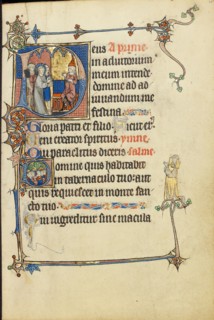 eus A prime
in adiutorium
meum intende
domine ad ad
iuuandum me
festina.
Gloria patri et filio Sicut et
Veni creator spiritus ympne
Qui paraclitus diceris salme
Domine quis habitabit
in tabernaculo tuo: aut
quis requiescet in monte san
cto tuo
Qui ingreditur sine macula